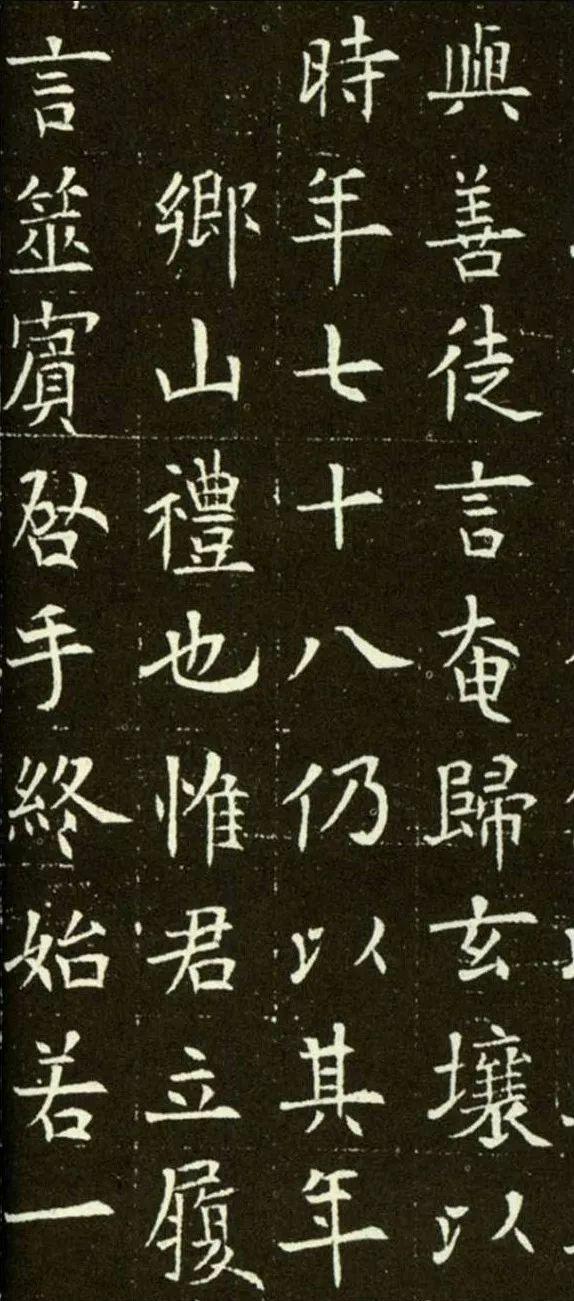 興善徒言奄歸玄壤以
時年七十八仍以其年
鄉山禮也惟君立履
言筮賓啓手終始若一